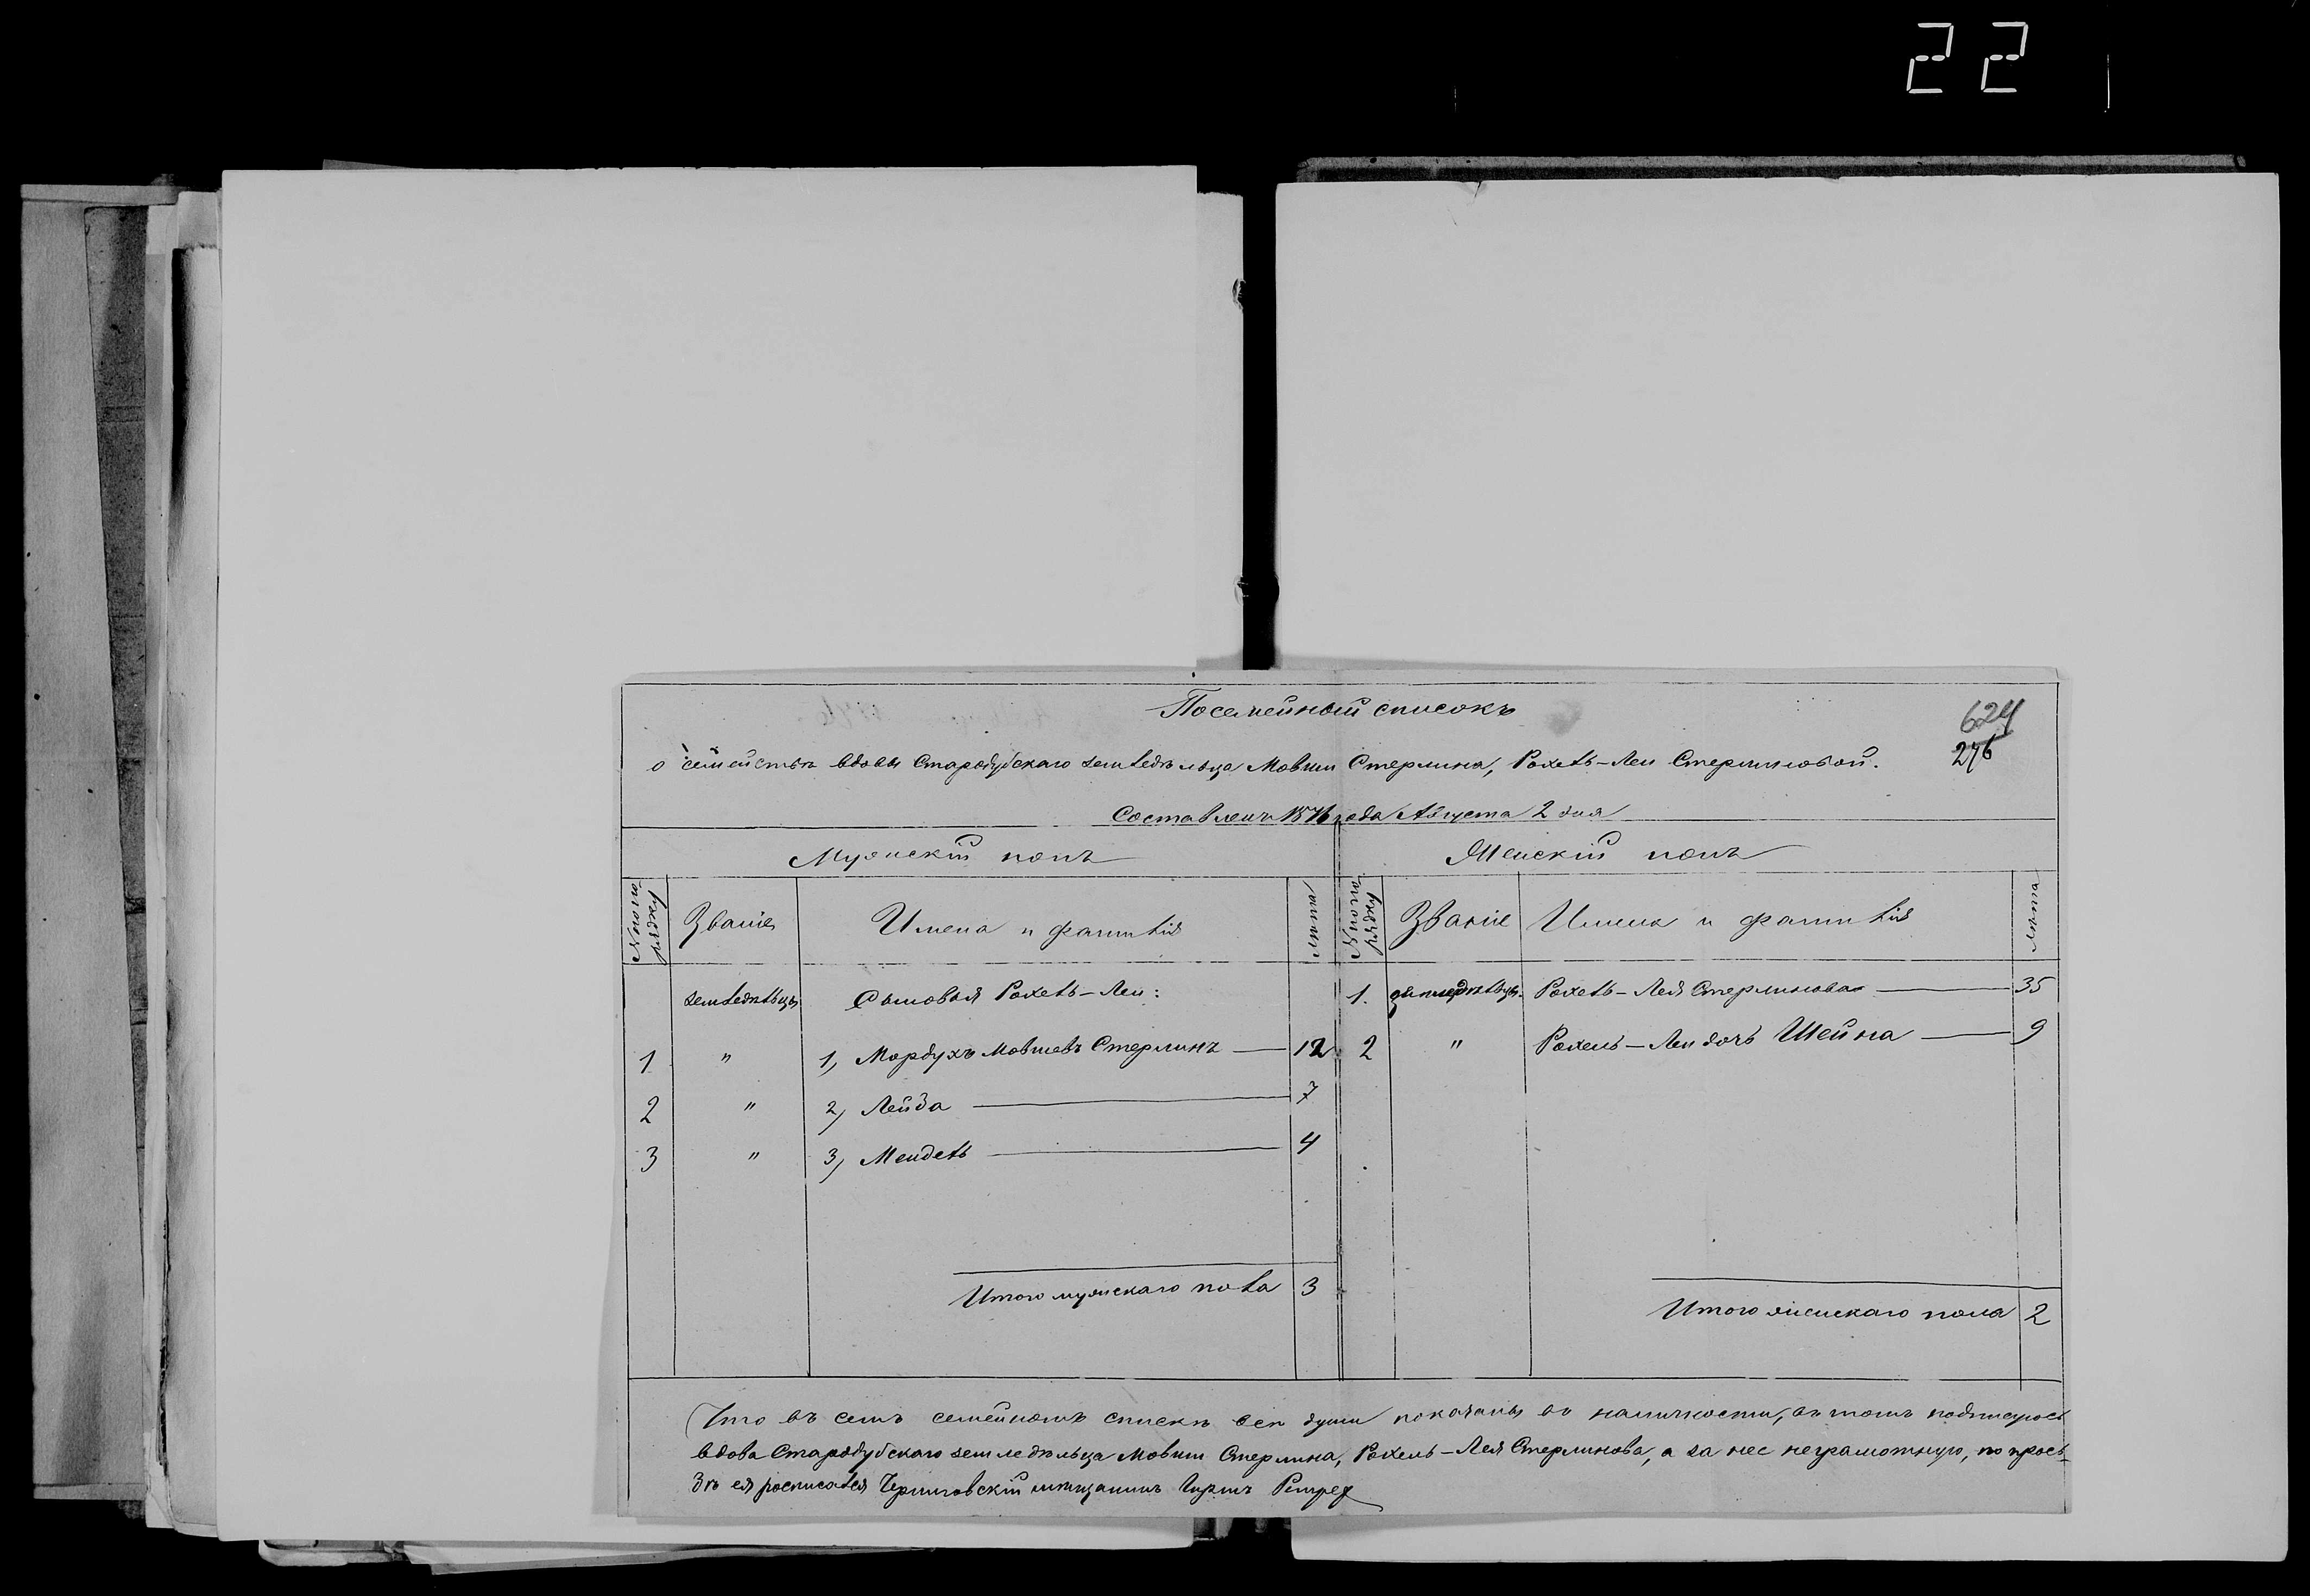 22
Посемейный списокъ
624
о семействѣ вдовы Стародубскаго земледѣльца Мовши Стерлина, Рохель-Леи Стерлиновой.
276
Составленъ 1876 года Августа 2 дня
Мужскій полъ
Женскій полъ
№ по порядку
Званіе
Имена и фамилія
лѣта
№ по порядку
Званіе
Имена и фамилія
лѣта
земледѣльцы
Сыновья Рохель-Леи:
1. земледѣльцы. Рохель-Лея Стерлинова 35
1 " 1, Мордухъ Мовшевъ Стерлинъ 12
2 " Рохель-Леи дочь Шейна 9
2 " 2, Лейба 7
3 " 3, Мендель 4
Итого мужскаго пола 3
Итого женскаго пола 2
Что въ семъ семейномъ спискѣ всѣ души показаны въ наличности, въ томъ подписуюсь
вдова Стародубскаго земледѣльца Мовши Стерлина, Рохель-Лея Стерлинова, а за нее неграмотную, по прозь-
бѣ ея росписался Черниговскій мѣщанинъ Гиршъ